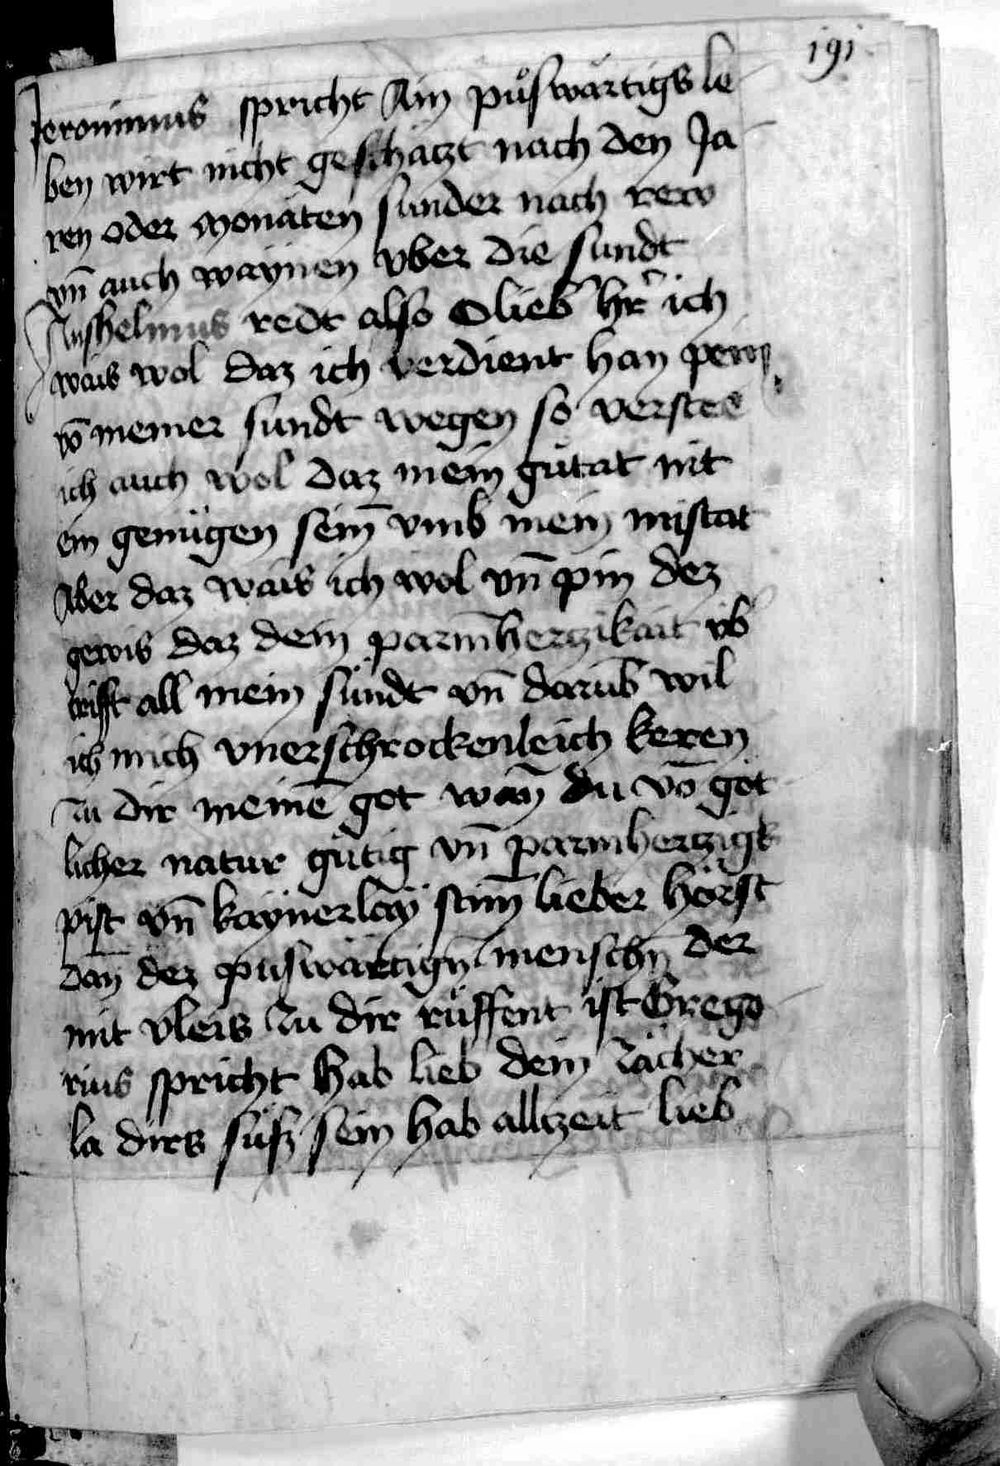 191
Jeronimus spricht Ain puͦswärtigs le
ben wirt nicht geschäczt nach den Ja
ren oder Monaten sunder nach rew
vn̄ auch waÿnen vber die sundt
Anshelmus redt also O lieb hr̄ ich
wais wol daz ich verdient han pein
vō meiner sundt wegen so verstee
ich auch wol daz mein gütat nit
ein genügen sein vmb mein mistat
Aber daz wais ich wol vn̄ pin dez
gewis daz dein parmhertzikait vb
trifft all mein sündt vn̄ darūb wil
ich mich vnerschrockenleich keren
zu dir meinē got wan̄ du vō göt
licher natur gütig vn̄ parmhertzigk
pist vn̄ kaÿnerlaÿ stim̄ lieber hörst
dan̄ dez puswärtign̄ menschn̄ der
mit vleis zu dir rüffent ist Grego
rius spricht Hab lieb dein zächer
la dirs süsz sein hab allczeit lieb